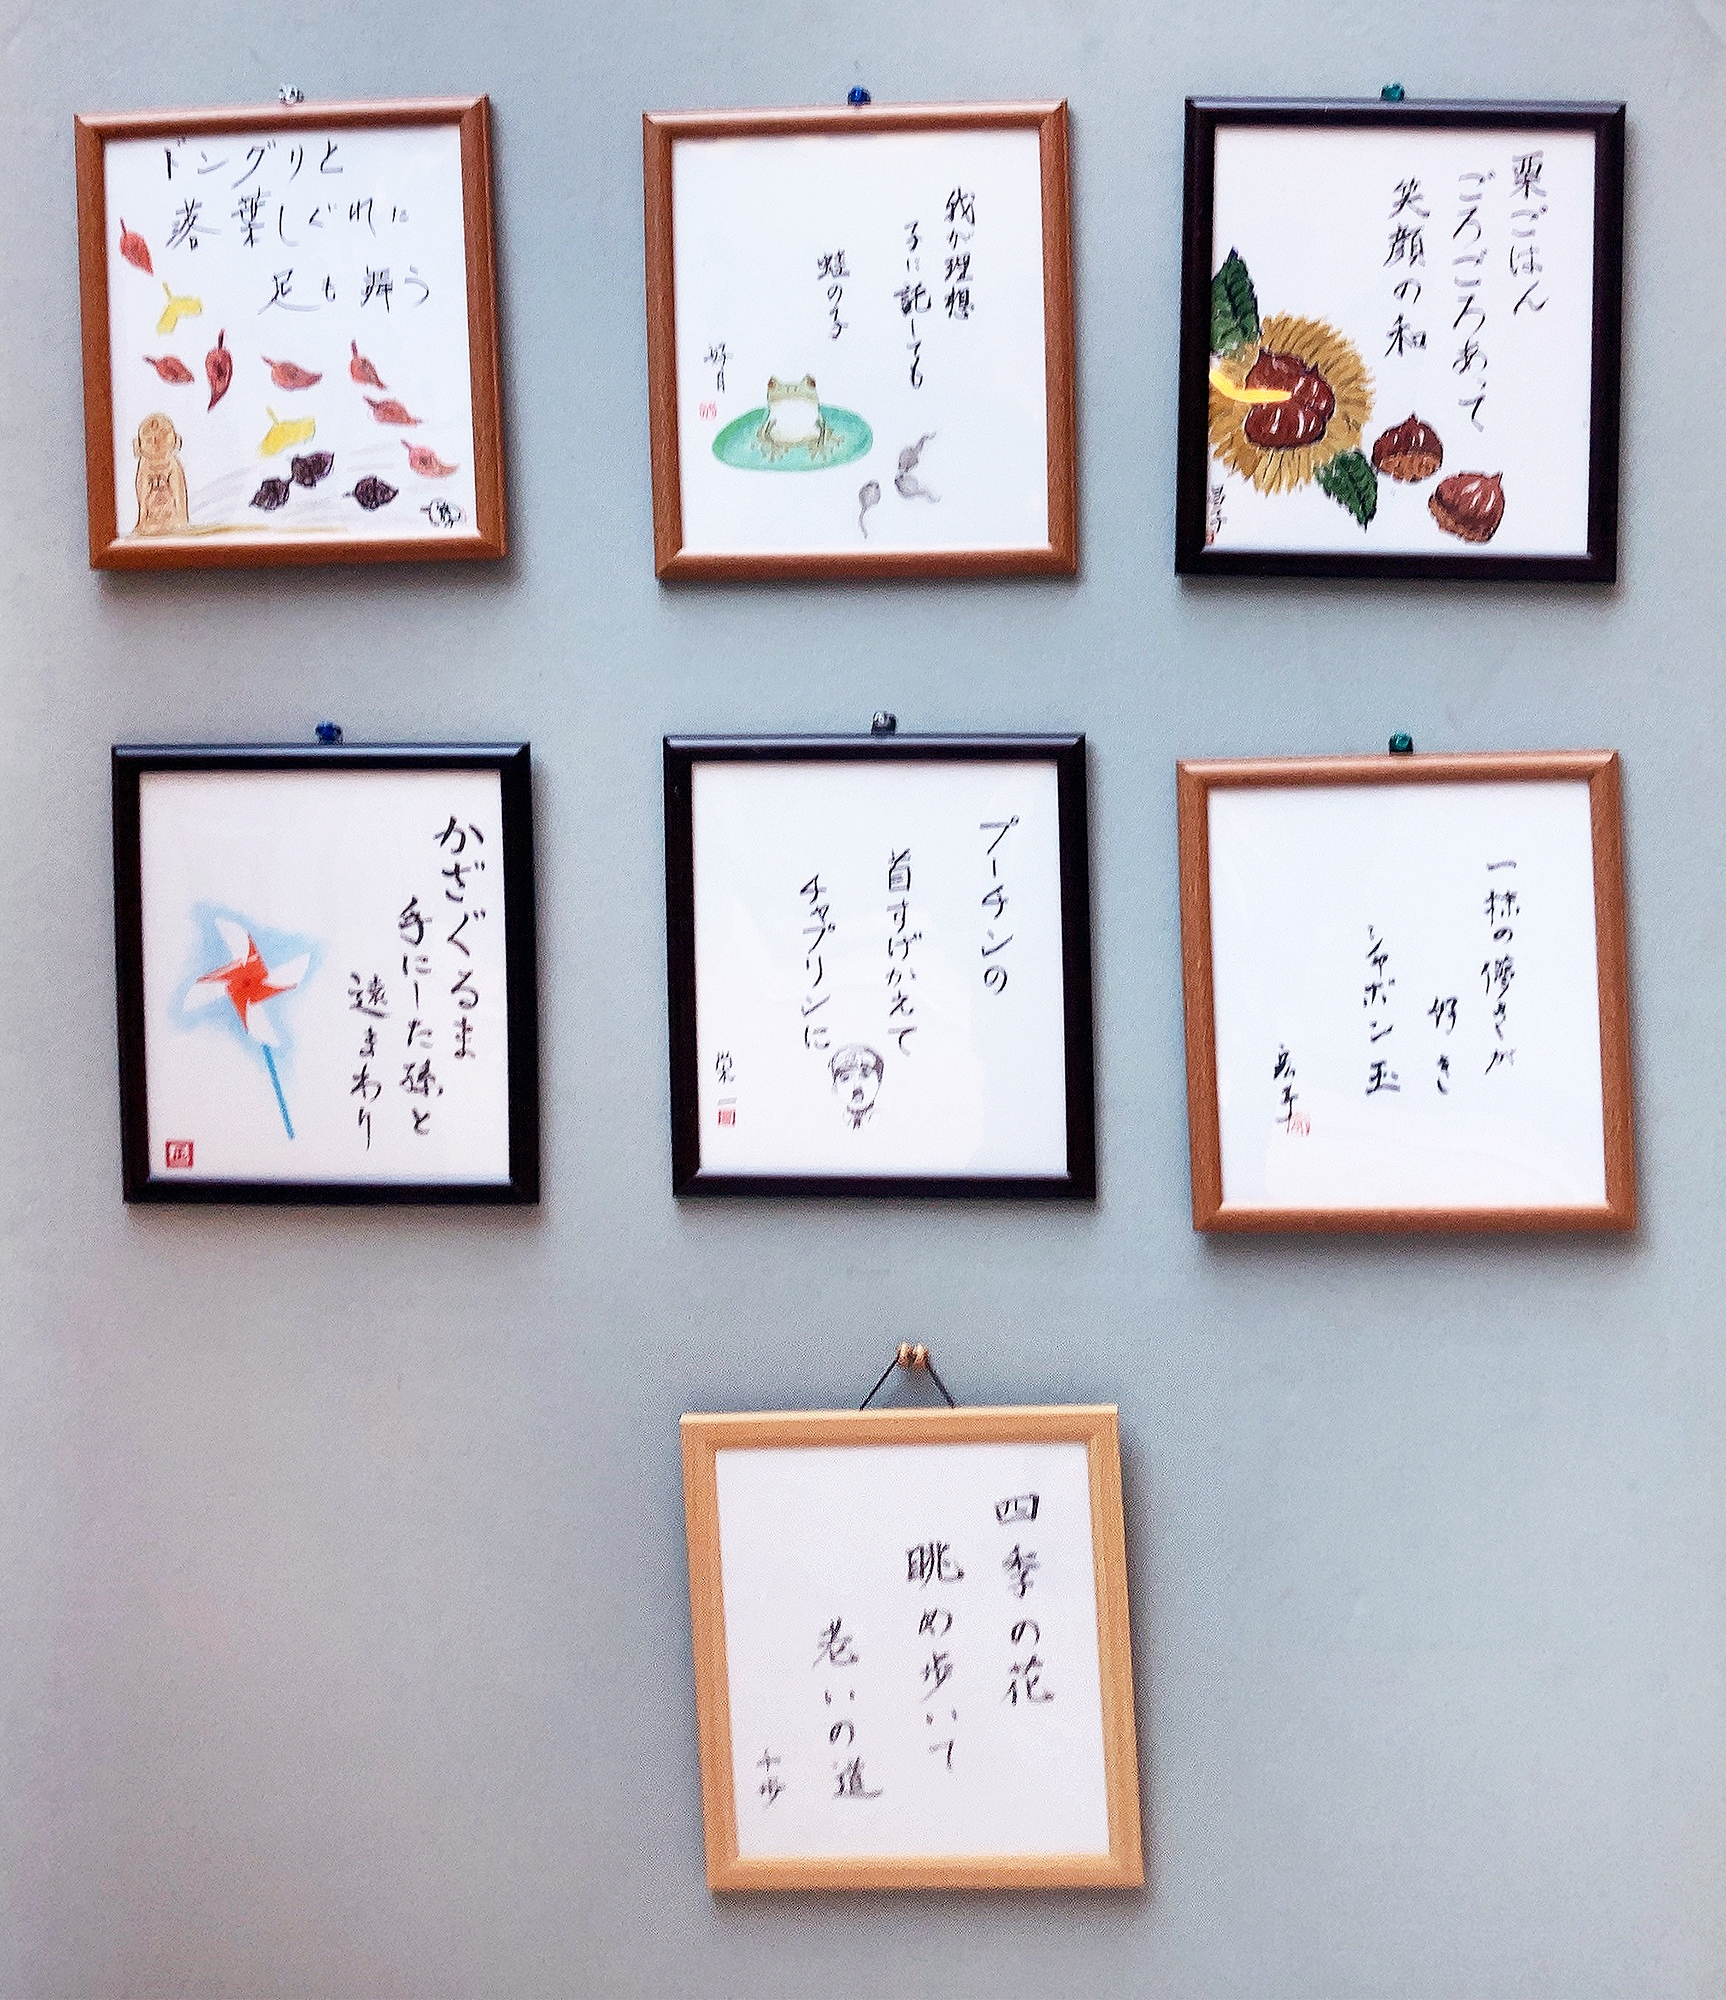 ドングリと
落葉しぐれに
足も舞う
我が理想
子に託しても
蛙の子
好月
栗ごはん
ごろごろあって
笑顔の和
かざぐるま
手にした孫と
遠まわり
正
プーチンの
首すげかえて
チャプリンに
栄一
一抹の儚さが
好き
シャボン玉
四季の花
眺め歩いて
老いの道
千歩